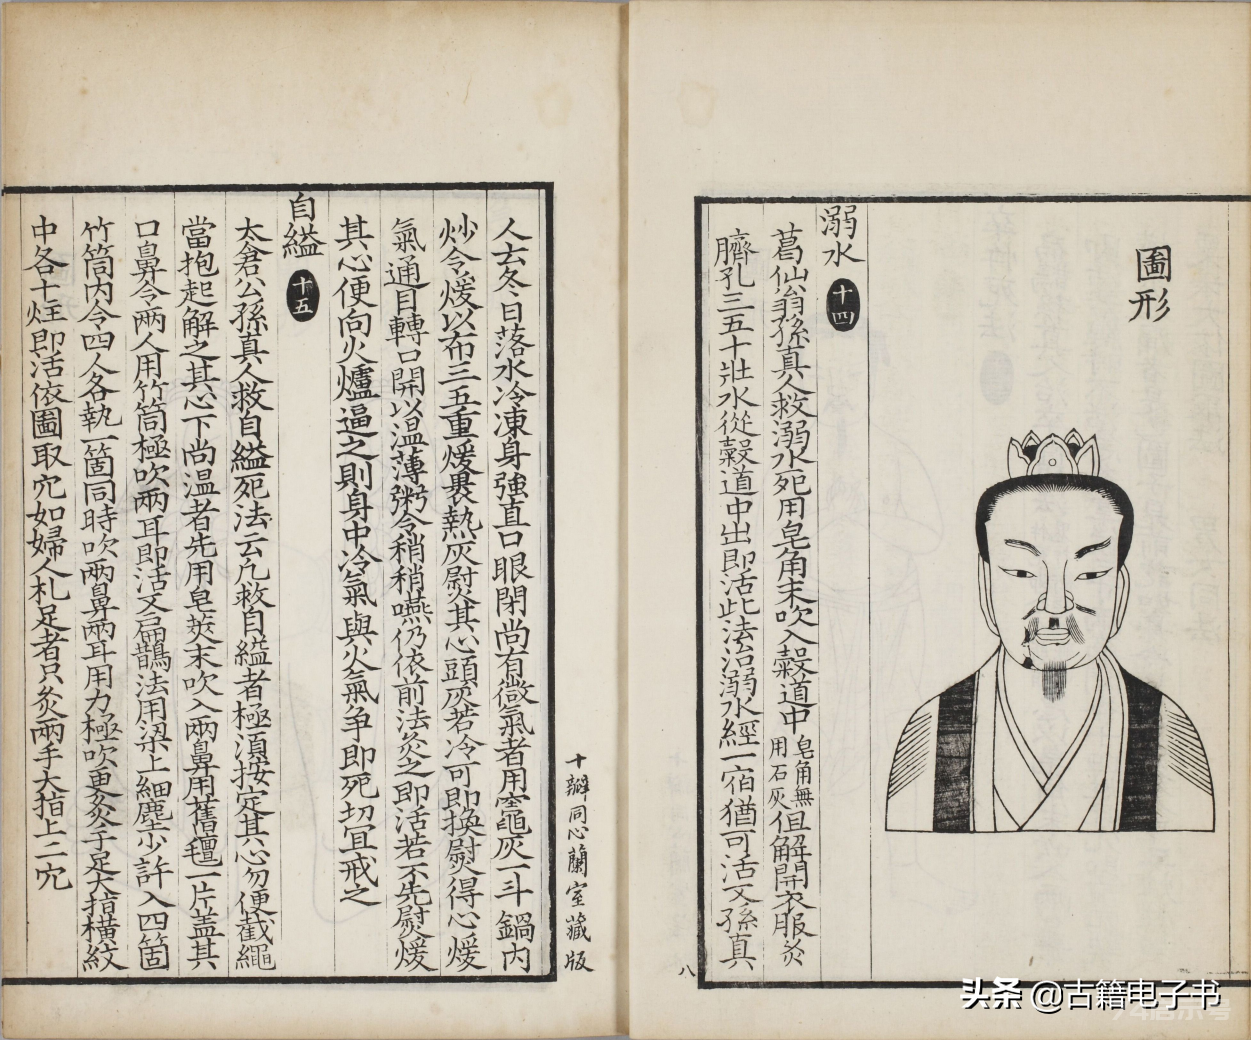 圖形
溺水 十四
葛仙翁孫真人救溺水死用皂角末吹入穀道中皂角無用石灰但解開衣服灸
臍孔三五十壯水從穀道中出即活此法治溺水經一宿猶可活又孫真
八
十瓣同心蘭室藏版
人云冬日落水冷凍身強直口眼閉尚有微氣者用竈灰一斗鍋內
炒令煖以布三五重煖裹熱灰熨其心頭灰若冷可即換熨得心煖
氣通目轉口開以溫薄粥令稍稍嚥仍依前法灸之即活若不先熨煖
其心便向火爐逼之則身中冷氣與火氣争即死切宜戒之
自縊 十五
太倉公孫真人救自縊死法云凢救自縊者極須按定其心勿便截繩
當抱起解之其心下尚温者先用皂莢末吹入兩鼻用舊氊一片盖其
口鼻令兩人用竹筒極吹兩耳即活又扁鵲法用梁上細塵少許入四箇
竹筒內令四人各執一箇同時吹兩鼻兩耳用力極吹更灸手足大指橫紋
中各十炷即活依圖取穴如婦人札足者只灸兩手大指上二穴
头条 @古籍电子书